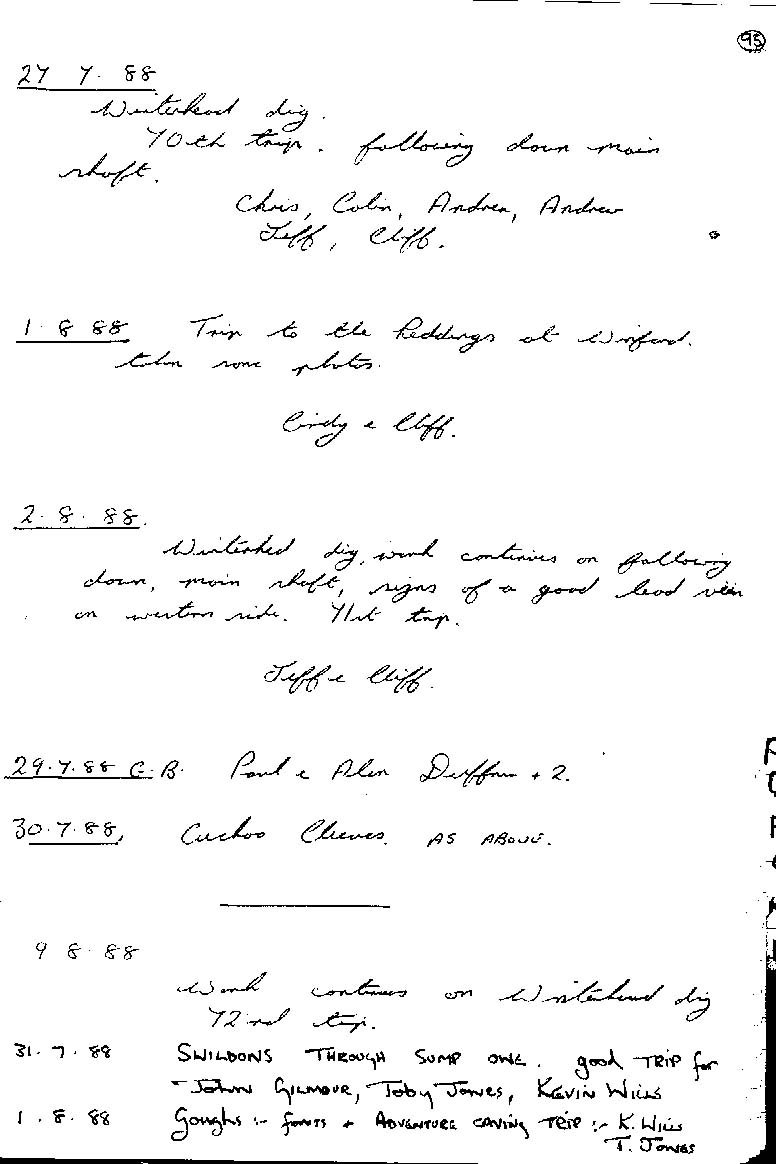 95
27 7. 88
Winterhead dig.
70th trip. following down main
shaft.
Chris, Colin, Andrea, Andrew
Jeff, Cliff.
1 8 88 Trip to the Reddings at Winford.
taken some photos.
Cindy & Cliff.
2. 8. 88.
Winterhed dig, work continues on following
down, main shaft, signs of a good lead vein
on western side. 71st trip.
Jeff & Cliff.
29.7.88 G.B. Paul & Alan + 2.
30.7.88, Cuckoo Cleeves. AS ABOVE.
9 8. 88
Work continues on Winterhead dig
72nd trip.
31. 7. 88 SWILDONS THROUGH SUMP ONE. good TRIP for
JOHN GILMOUR, Toby JONES, KEVIN WILLS
1. 8. 88 Goughs :- fonts + ADVENTURE CAVING TRIP :- K. WILLS
T. JONES